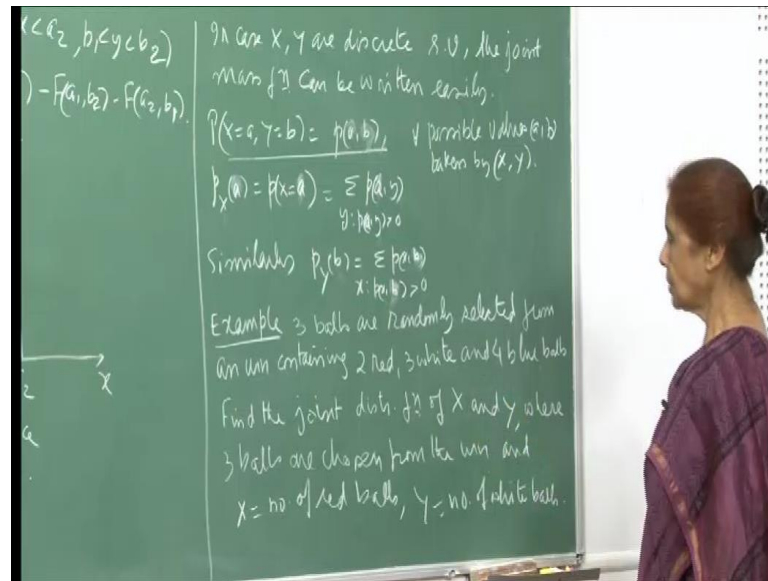 x<a₂, b₁<y<b₂)
) - F(a₁,b₂) - F(a₂,b₁).
x
a
In case X, Y are discrete r.v, the joint
mass fⁿ. can be written easily.
P(X=a, Y=b) = p(a,b), ∀ possible values (a,b)
taken by (X, Y).
p_X(a) = p(X=a) = Σ p(a,y)
y: p(a,y)>0
Similarly p_Y(b) = Σ p(x,b)
x: p(x,b)>0
Example 3 balls are randomly selected from
an urn containing 2 red, 3 white and 4 blue balls
Find the joint distn. fⁿ. of X and Y, where
3 balls are chosen from the urn and
X = no. of red balls, Y = no. of white balls.